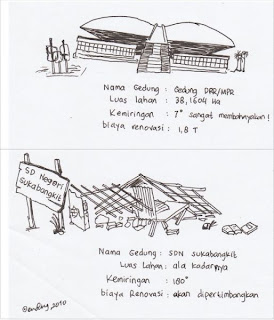 Nama Gedung : Gedung DPR/MPR
Luas lahan : 38,1604 Ha
Kemiringan : 7° sangat membahayakan!
biaya renovasi : 1,8 T
SD Negeri
Sukabangkit
Nama Gedung : SDN Sukabangkit
Luas Lahan : ala kadarnya
Kemiringan : 180°
biaya Renovasi : akan dipertimbangkan
2010